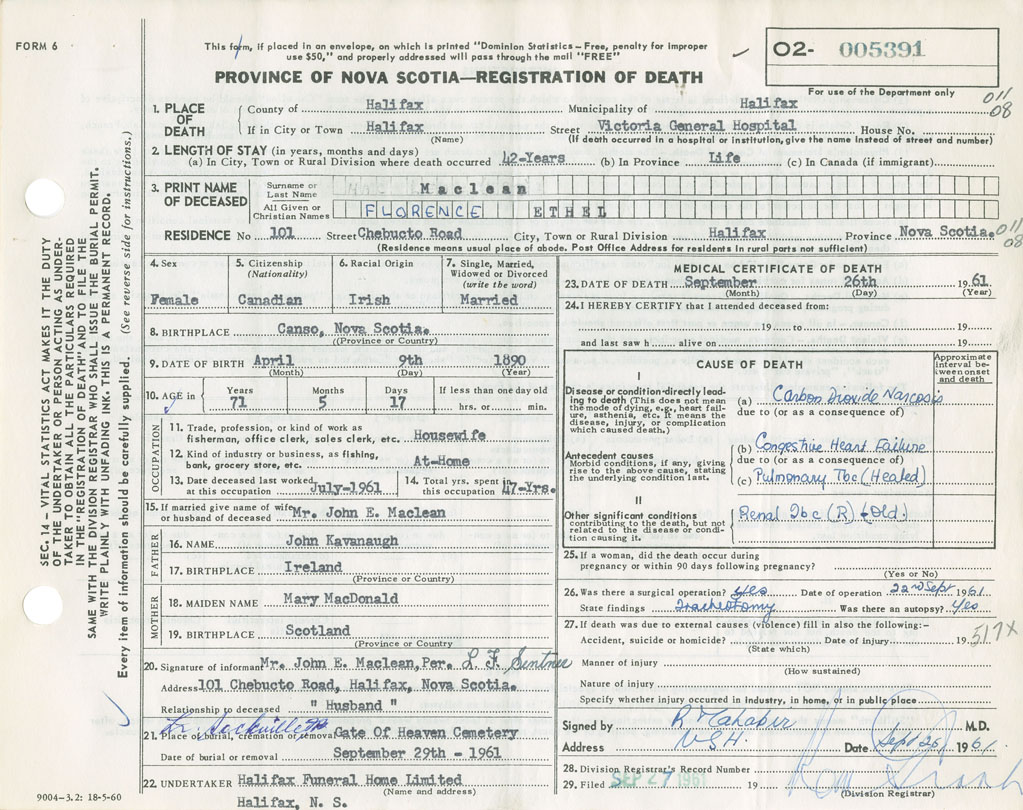 FORM 6
This form, if placed in an envelope, on which is printed "Dominion Statistics – Free, penalty for improper
use $50," and properly addressed will pass through the mail "FREE"
PROVINCE OF NOVA SCOTIA—REGISTRATION OF DEATH
O2- 005391
For use of the Department only
011
08
1. PLACE OF DEATH
County of Halifax Municipality of Halifax
If in City or Town Halifax Street Victoria General Hospital House No.
(Name) (If death occurred in a hospital or institution, give the name instead of street and number)
2. LENGTH OF STAY (in years, months and days)
(a) In City, Town or Rural Division where death occurred 42-Years (b) In Province Life (c) In Canada (if immigrant)
3. PRINT NAME OF DECEASED
Surname or Last Name Maclean
All Given or Christian Names FLORENCE ETHEL
RESIDENCE No 101 Street Chebucto Road City, Town or Rural Division Halifax Province Nova Scotia. 011
08
(Residence means usual place of abode. Post Office Address for residents in rural parts not sufficient)
4. Sex
Female
5. Citizenship
(Nationality)
Canadian
6. Racial Origin
Irish
7. Single, Married,
Widowed or Divorced
(write the word)
Married
8. BIRTHPLACE Canso, Nova Scotia.
(Province or Country)
9. DATE OF BIRTH April 9th 1890
(Month) (Day) (Year)
10. AGE in
Years Months Days If less than one day old
71 5 17 hrs. or min.
OCCUPATION
11. Trade, profession, or kind of work as
fisherman, office clerk, sales clerk, etc. Housewife
12. Kind of industry or business, as fishing,
bank, grocery store, etc. At-Home
13. Date deceased last worked
at this occupation July-1961
14. Total yrs. spent in
this occupation 47-Yrs.
15. If married give name of wife
or husband of deceased Mr. John E. Maclean
FATHER
16. NAME John Kavanaugh
17. BIRTHPLACE Ireland
(Province or Country)
MOTHER
18. MAIDEN NAME Mary MacDonald
19. BIRTHPLACE Scotland
(Province or Country)
20. Signature of informant Mr. John E. Maclean, Per. L. F.
Address 101 Chebucto Road, Halifax, Nova Scotia.
Relationship to deceased " Husband "
Sackville
21. Place of burial, cremation or removal Gate Of Heaven Cemetery
Date of burial or removal September 29th - 1961
22. UNDERTAKER Halifax Funeral Home Limited
(Name and address)
Halifax, N. S.
MEDICAL CERTIFICATE OF DEATH
23. DATE OF DEATH September 26th 19 61
(Month) (Day) (Year)
24. I HEREBY CERTIFY that I attended deceased from:
19 to 19
and last saw h alive on 19
CAUSE OF DEATH
Approximate
interval be-
tween onset
and death
I
Disease or condition directly lead-
ing to death (This does not mean
the mode of dying, e.g., heart fail-
ure, asthenia, etc. It means the
disease, injury, or complication
which caused death.)
(a) Carbon Dioxide Narcosis
due to (or as a consequence of)
Antecedent causes
Morbid conditions, if any, giving
rise to the above cause, stating
the underlying condition last.
(b) Congestive Heart Failure
due to (or as a consequence of)
(c) Pulmonary Tbc (Healed)
II
Other significant conditions
contributing to the death, but not
related to the disease or condi-
tion causing it.
Renal Tbc (R) + Old.
25. If a woman, did the death occur during
pregnancy or within 90 days following pregnancy?
(Yes or No)
26. Was there a surgical operation? Yes Date of operation 22nd Sept 1961
State findings Tracheotomy Was there an autopsy? Yes
27. If death was due to external causes (violence) fill in also the following:–
Accident, suicide or homicide? Date of injury 19
(State which)
517X
Manner of injury
(How sustained)
Nature of injury
Specify whether injury occurred in industry, in home, or in public place
Signed by M.D.
Address V.G.H. Date Sept 26 1961
28. Division Registrar's Record Number
29. Filed SEP 27 1961 19
(Division Registrar)
SEC. 14 – VITAL STATISTICS ACT MAKES IT THE DUTY
OF THE UNDERTAKER OR PERSON ACTING AS UNDER-
TAKER TO OBTAIN ALL THE PARTICULARS REQUIRED
IN THE "REGISTRATION OF DEATH" AND TO FILE THE
SAME WITH THE DIVISION REGISTRAR WHO SHALL ISSUE THE BURIAL PERMIT.
WRITE PLAINLY WITH UNFADING INK. THIS IS A PERMANENT RECORD.
Every item of information should be carefully supplied. (See reverse side for instructions.)
9004-3.2: 18-5-60